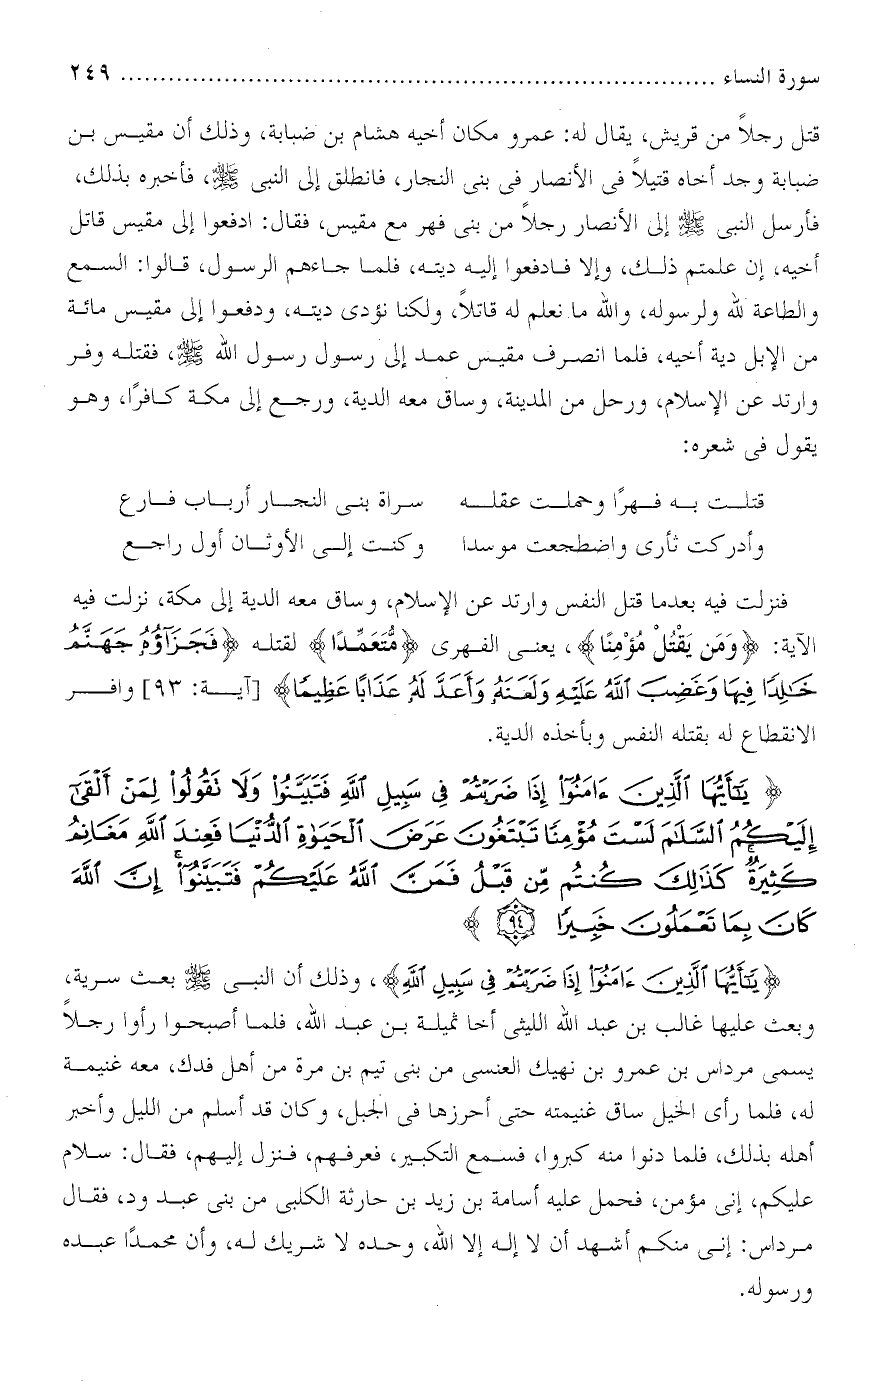 سورة النساء ........................................................................ ٢٤٩
قتل رجلاً من قريش، يقال له: عمرو مكان أخيه هشام بن ضبابة، وذلك أن مقيس بن
ضبابة وجد أخاه قتيلاً فى الأنصار فى بنى النجار، فانطلق إلى النبى ﷺ، فأخبره بذلك،
فأرسل النبى ﷺ إلى الأنصار رجلاً من بنى فهر مع مقيس، فقال: ادفعوا إلى مقيس قاتل
أخيه، إن علمتم ذلك، وإلا فادفعوا إليه ديته، فلما جاءهم الرسول، قالوا: السمع
والطاعة لله ولرسوله، والله ما نعلم له قاتلاً، ولكنا نؤدى ديته، ودفعوا إلى مقيس مائة
من الإبل دية أخيه، فلما انصرف مقيس عمد إلى رسول رسول الله ﷺ، فقتله وفر
وارتد عن الإسلام، ورحل من المدينة، وساق معه الدية، ورجع إلى مكة كافرًا، وهو
يقول فى شعره:
قتلت به فهرًا وحملت عقله سراة بنى النجار أرباب فارع
وأدركت ثأرى واضطجعت موسدا وكنت إلى الأوثان أول راجع
فنزلت فيه بعدما قتل النفس وارتد عن الإسلام، وساق معه الدية إلى مكة، نزلت فيه
الآية: ﴿وَمَن يَقْتُلْ مُؤْمِنًا﴾، يعنى الفهرى ﴿مُّتَعَمِّدًا﴾ لقتله ﴿فَجَزَآؤُهُ جَهَنَّمُ
خَٰلِدًا فِيهَا وَغَضِبَ ٱللَّهُ عَلَيْهِ وَلَعَنَهُ وَأَعَدَّ لَهُ عَذَابًا عَظِيمًا﴾ [آية: ٩٣] وافر
الانقطاع له بقتله النفس وبأخذه الدية.
﴿ يَٰٓأَيُّهَا ٱلَّذِينَ ءَامَنُوٓا۟ إِذَا ضَرَبْتُمْ فِى سَبِيلِ ٱللَّهِ فَتَبَيَّنُوا۟ وَلَا تَقُولُوا۟ لِمَنْ أَلْقَىٰٓ
إِلَيْكُمُ ٱلسَّلَٰمَ لَسْتَ مُؤْمِنًا تَبْتَغُونَ عَرَضَ ٱلْحَيَوٰةِ ٱلدُّنْيَا فَعِندَ ٱللَّهِ مَغَانِمُ
كَثِيرَةٌ ۚ كَذَٰلِكَ كُنتُم مِّن قَبْلُ فَمَنَّ ٱللَّهُ عَلَيْكُمْ فَتَبَيَّنُوٓا۟ ۚ إِنَّ ٱللَّهَ
كَانَ بِمَا تَعْمَلُونَ خَبِيرًا ٩٤ ﴾
﴿يَٰٓأَيُّهَا ٱلَّذِينَ ءَامَنُوٓا۟ إِذَا ضَرَبْتُمْ فِى سَبِيلِ ٱللَّهِ﴾، وذلك أن النبى ﷺ بعث سرية،
وبعث عليها غالب بن عبد الله الليثى أخا ثميلة بن عبد الله، فلما أصبحوا رأوا رجلاً
يسمى مرداس بن عمرو بن نهيك العنسى من بنى تيم بن مرة من أهل فدك، معه غنيمة
له، فلما رأى الخيل ساق غنيمته حتى أحرزها فى الجبل، وكان قد أسلم من الليل وأخبر
أهله بذلك، فلما دنوا منه كبروا، فسمع التكبير، فعرفهم، فنزل إليهم، فقال: سلام
عليكم، إنى مؤمن، فحمل عليه أسامة بن زيد بن حارثة الكلبى من بنى عبد ود، فقال
مرداس: إنى منكم أشهد أن لا إله إلا الله، وحده لا شريك له، وأن محمدًا عبده
ورسوله.